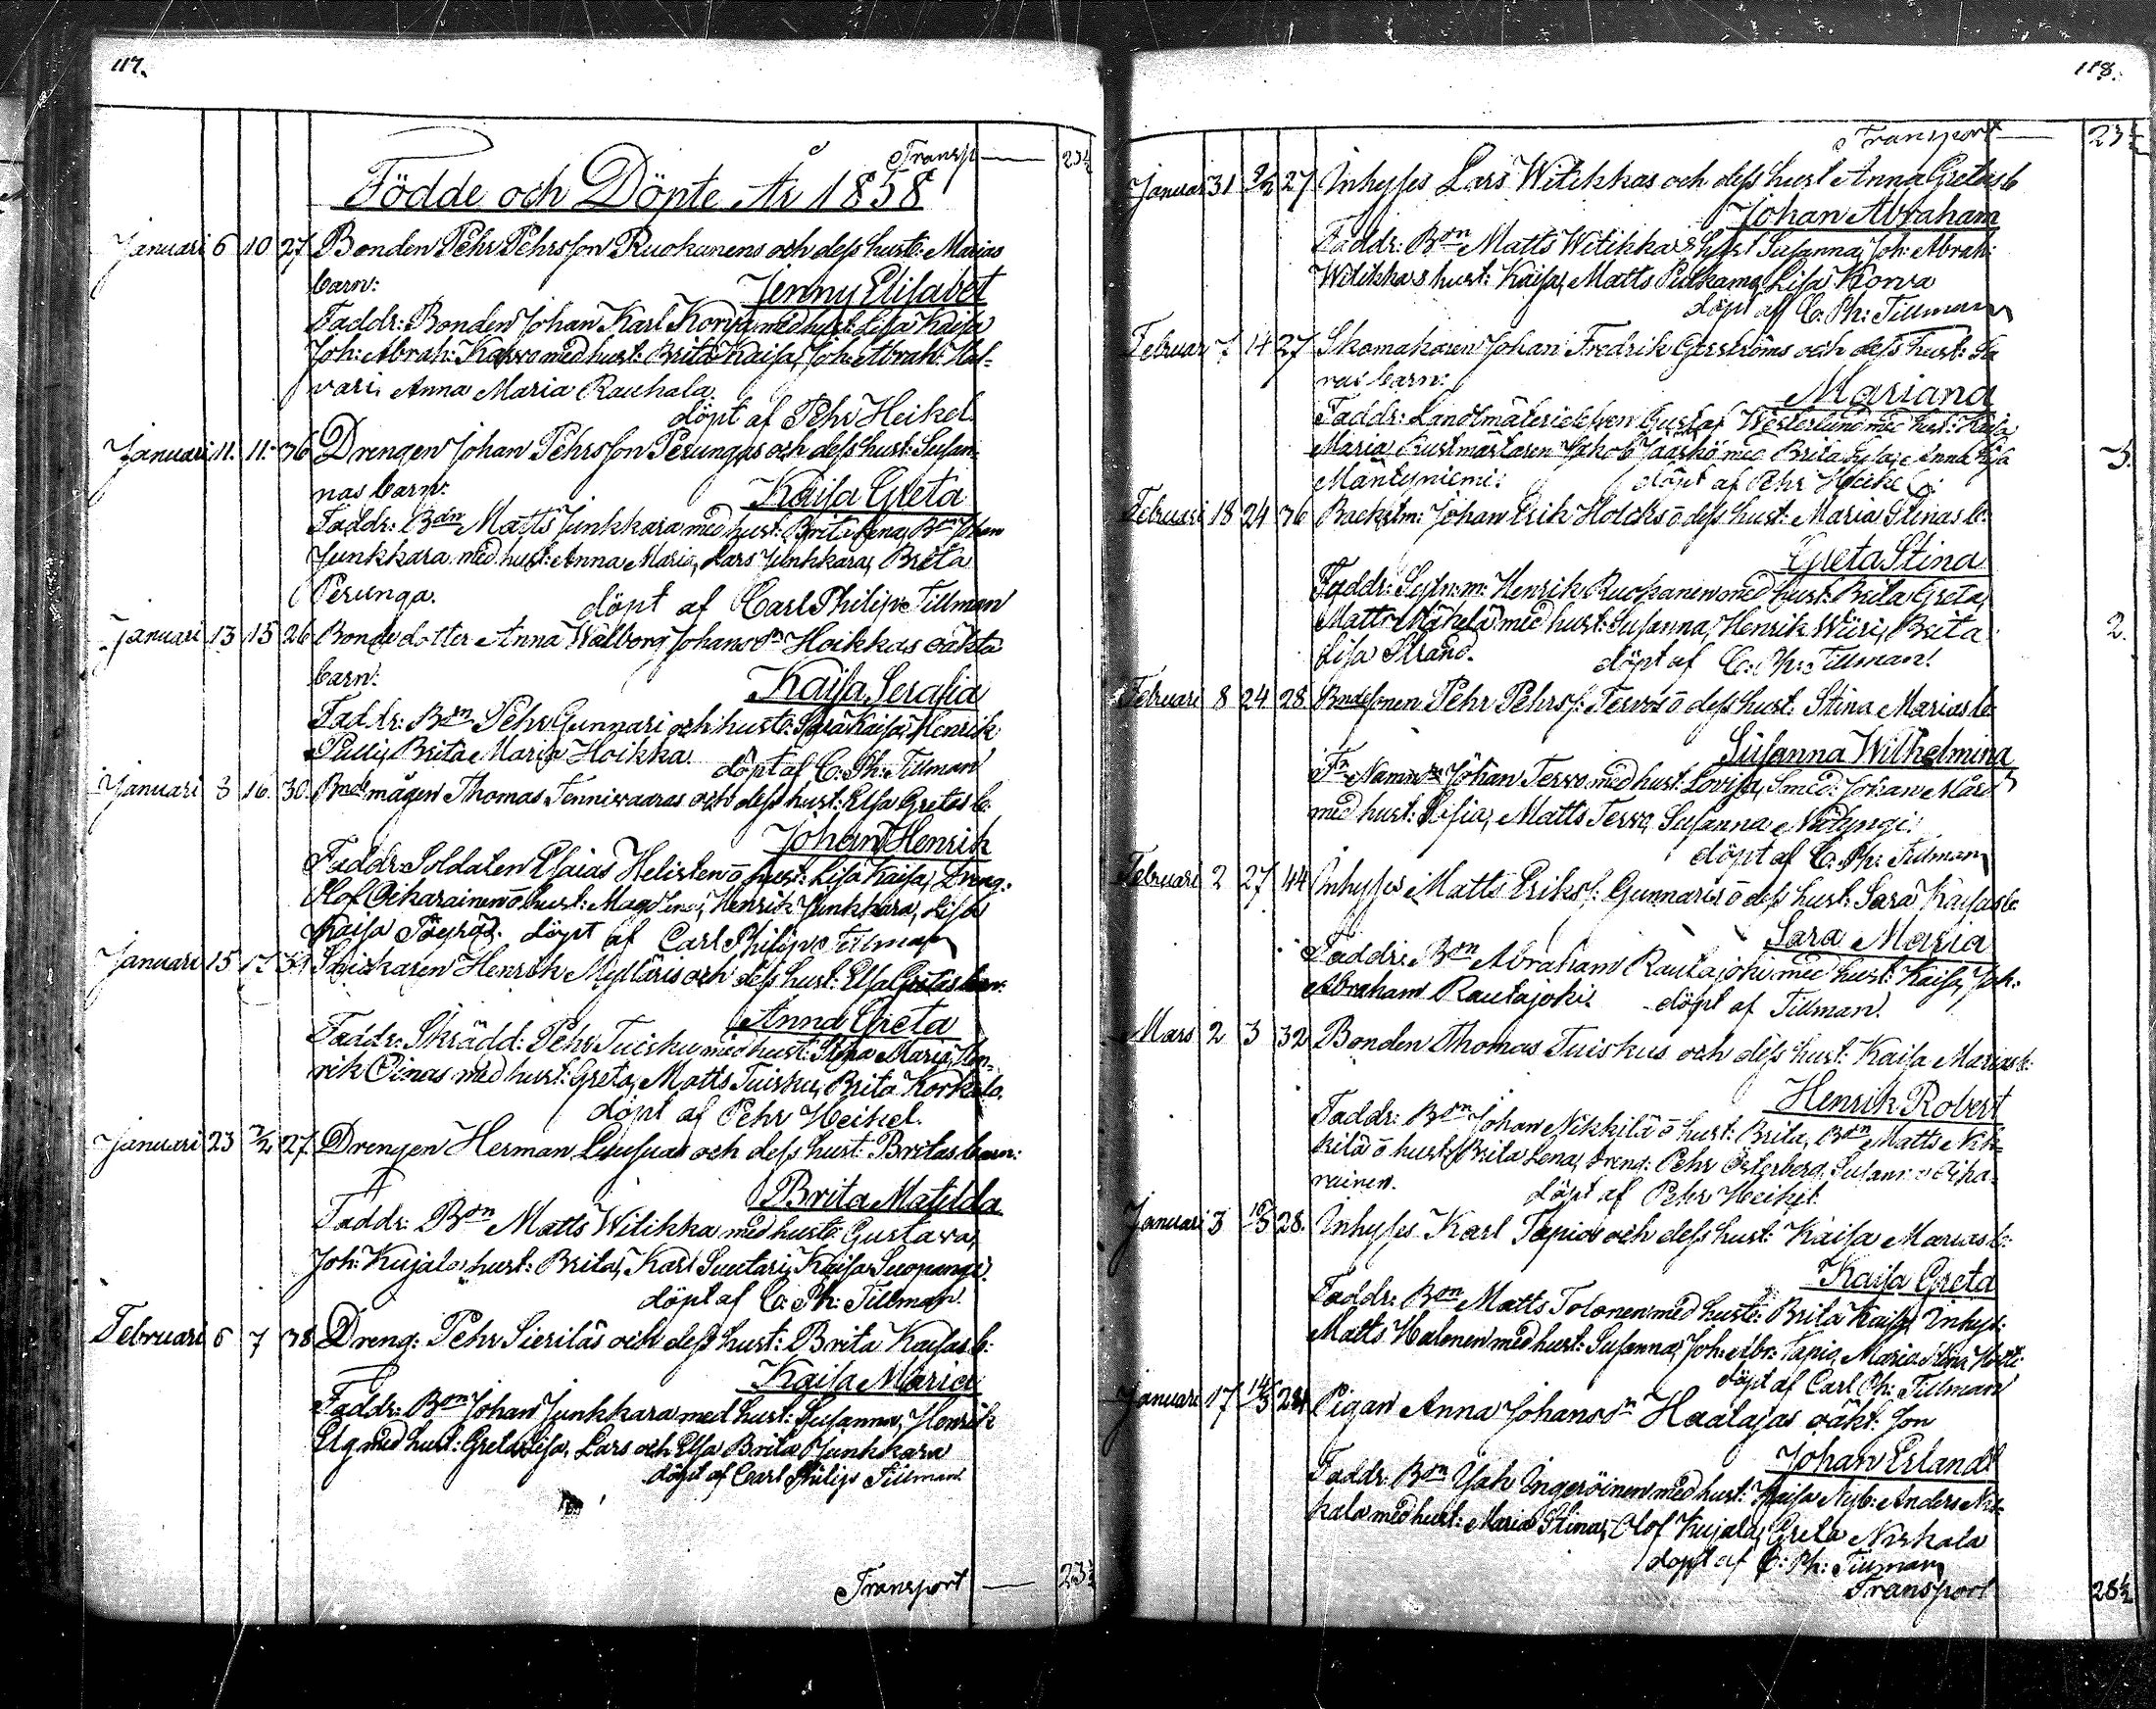 117.
Transp — 23½
Födde och Döpte År 1858
Januari 6 10 27 Bonden Pehr Pehrsson Ruokanens och dess hustr: Marias
barn:
Jenny Elisabet
Faddr: Bonden Johan Karl Korva med hust: Lisa Kaisa
Joh: Abrah: med hust: Brita Kaisa, Joh: Abrah:
vari, Anna Maria Rauhala.
döpt af Pehr Heikel.
Januari 11. 11. 36 Drengen Johan Pehrsson Perungas och dess hust: Susan-
nas barn:
Kaisa Greta
Faddr: Bdn Matts Junkkara med hust: Brita Lena, Bdn Johan
Junkkara med hust: Anna Maria, Lars Junkkara, Brita
Perunga.
döpt af Carl Philip Tillman
Januari 13 15 26 Bonde dotter Anna Walborg Johansdn Hoikkas oäkta
barn:
Kaisa Serafia
Faddr: Bdn Pehr Gunnari och hustr: Sara Kaisa, Henrik
Pulli, Brita Maria Hoikka.
döpt af C: Ph: Tillman
Januari 3 16. 30. Bndemågen Thomas Tennivaaras och dess hust: Elsa Gretas b:
Johan Henrik
Faddr: Soldaten Esaias Helisten ō hust: Lisa Kaisa, Dreng:
Olof Oikarainen ō hust: Magdlena, Henrik Junkkara, Lisa
Kaisa
döpt af Carl Philip Tillman
Januari 15 17 Henrik och dess hust: Elsa Gretas barn:
Anna Greta
Faddr: Skrädd: Pehr Tuisku med hust: Stina Maria, Hen-
rik Oinas med hust: Greta, Matts Tuisku, Brita Korkalo.
döpt af Pehr Heikel.
Januari 23 2/2 27 Drengen Herman Luusuas och dess hust: Britas barn:
Brita Matilda
Faddr: Bdn Matts Witikka med hustr: Gustava,
Joh: Kujala hust: Brita, Karl Suutari, Kaisa Suopangi.
döpt af C: Ph: Tillman.
Februari 6 7 38 Dreng: Pehr Sieriläs och dess hust: Brita Kaisas b:
Kaisa Maria
Faddr: Bdn Johan Junkkara med hust: Susanna, Henrik
Ug med hust: Greta Lisa, Lars och Elsa Brita Junkkara
döpt af Carl Philip Tillman.
Transport — 23½
118.
Transport — 23½
Januari 31 2/2 27 Inhyses Lars Witikkas och dess hust Anna Gretas b
Johan Abraham
Faddr: Bdn Matts Witikkas hust Susanna, Joh: Abrah:
Witikkas hust: Kaisa, Matts Pulkamo, Lisa Korva
döpt af C: Ph: Tillman
Februari 7 14 27 Skomakaren Johan Fredrik Gerströms och dess hust: Sa
ras barn:
Mariana
Faddr: Landtmäterieleven Gustaf Westerlund med hust: Kaisa
Maria, Rustmästaren Jakob Jaaskö med Brita Lisa, Anna Lisa
Mäntyniemi.
döpt af Pehr Heikel.
3.
Februari 18 24 36 Backstm: Johan Erik Holcks ō dess hust: Maria Stinas b:
Greta Stina
Faddr: Sytn:m: Henrik Ruokanen med hust: Brita Greta,
Matts Mäkelä med hust: Susanna, Henrik Wiiri, Brita
Lisa Strand.
döpt af C: Ph: Tillman.
2.
Februari 8 24 28 Bndesonen Pehr Pehrss: Tervos ō dess hust: Stina Marias b:
Susanna Wilhelmina
Johan Tervo med hust: Lovisa, Smed: Johan Mård
med hust: Sofia, Matts Tervo, Susanna
döpt af C: Ph: Tillman
Februari 2 27 44 Inhyses Matts Erikss: Gunnaris ō dess hust: Sara Kaisas b:
Sara Maria
Faddr: Bdn Abraham Rautajoki med hust: Kaisa, Joh:
Abraham Rautajoki.
döpt af Tillman.
Mars 2 3 32 Bonden Thomas Tuiskus och dess hust: Kaisa Marias b:
Henrik Robert
Faddr: Bdn Johan Nikkilä ō hust: Brita, Bdn Matts Nik-
kilä ō hust: Brita Lena, Dreng: Pehr Österberg, Susanna Oika-
rainen.
döpt af Pehr Heikel.
Januari 3 10/3 28. Inhyses Karl Tapios och dess hust: Kaisa Marias b:
Kaisa Greta
Faddr: Bdn Matts Tolonen med hustr: Brita Kaisa, Inhys:
Matts Halonen med hust: Susanna, Joh: Abr: Tapio, Maria Stina
döpt af Carl Ph: Tillman
Januari 17 14/3 24 Pigan Anna Johansdn Haatajas oäkt: son
Johan Erland
Faddr: Bdn Isak Ingeröinen med hust: Kaisa, Nyb: Anders Nis-
kala med hust: Maria Stina, Olof Kujala, Greta Niskala
döpt af C: Ph: Tillman
Transport 28½